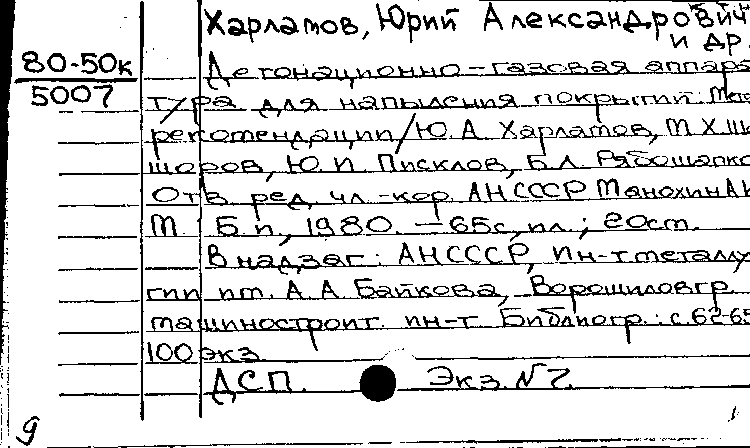 Харламов, Юрий Александрович
и др.
80-50к
5007
Детонационно-газовая аппара
тура для напыления покрытий: Мет
рекомендации/Ю.А. Харламов, М.Х. Ш
шоров, Ю.И. Писклов, Б.Л. Рябошапко
Отв ред. чл.-кор. АН СССР Манохин А.И
М Б и, 1980. - 65с, ил.; 20см.
В надзаг: АН СССР, Ин-т металлу
гии им. А.А. Байкова, Ворошиловгр.
машиностроит. ин-т. Библиогр.: с. 62-65
100 экз
ДСП. Экз. №2.
g